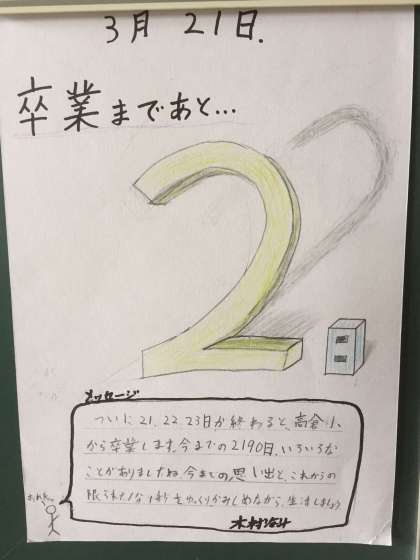 3月 21日.
卒業まであと...
2日
メッセージ
ついに 21, 22 23日が 終わると、高倉小
から卒業します。今までの2190日、いろいろな
ことがありましたね 今までの思い出と、これからの
限られた 1秒 1秒をゆっくりかみしめながら、生活しましょう
おれ
木村